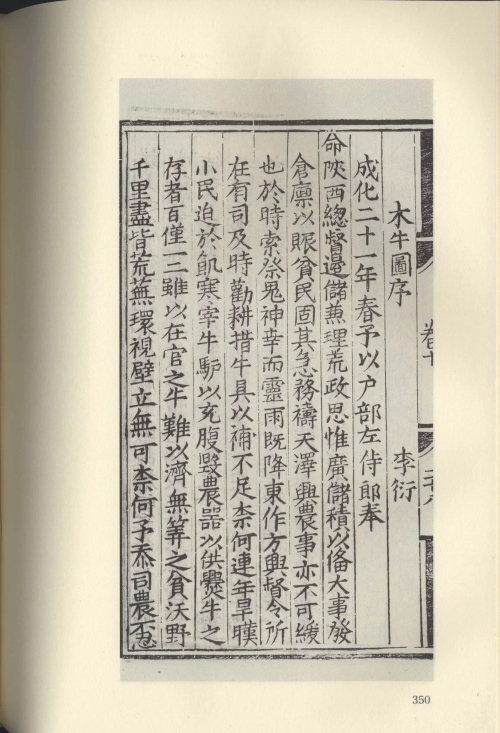 木牛圖序
李衍
成化二十一年春予以户部左侍郎奉
命陝西總督邊儲蕪理荒政思惟廣儲積以俻大事發
倉廪以賑貧民固其急務禱天澤興農事亦不可緩
也於時索祭鬼神幸而靈雨既降東作方興督令所
在有司及時勸耕措牛具以補不足柰何連年旱暵
小民迫於飢寒宰牛馿以充腹毀農器以供爨牛之
存者百僅一二雖以在官之牛難以濟無筭之貧沃野
千里盡皆荒蕪環視壁立無可柰何予忝司農丕
350